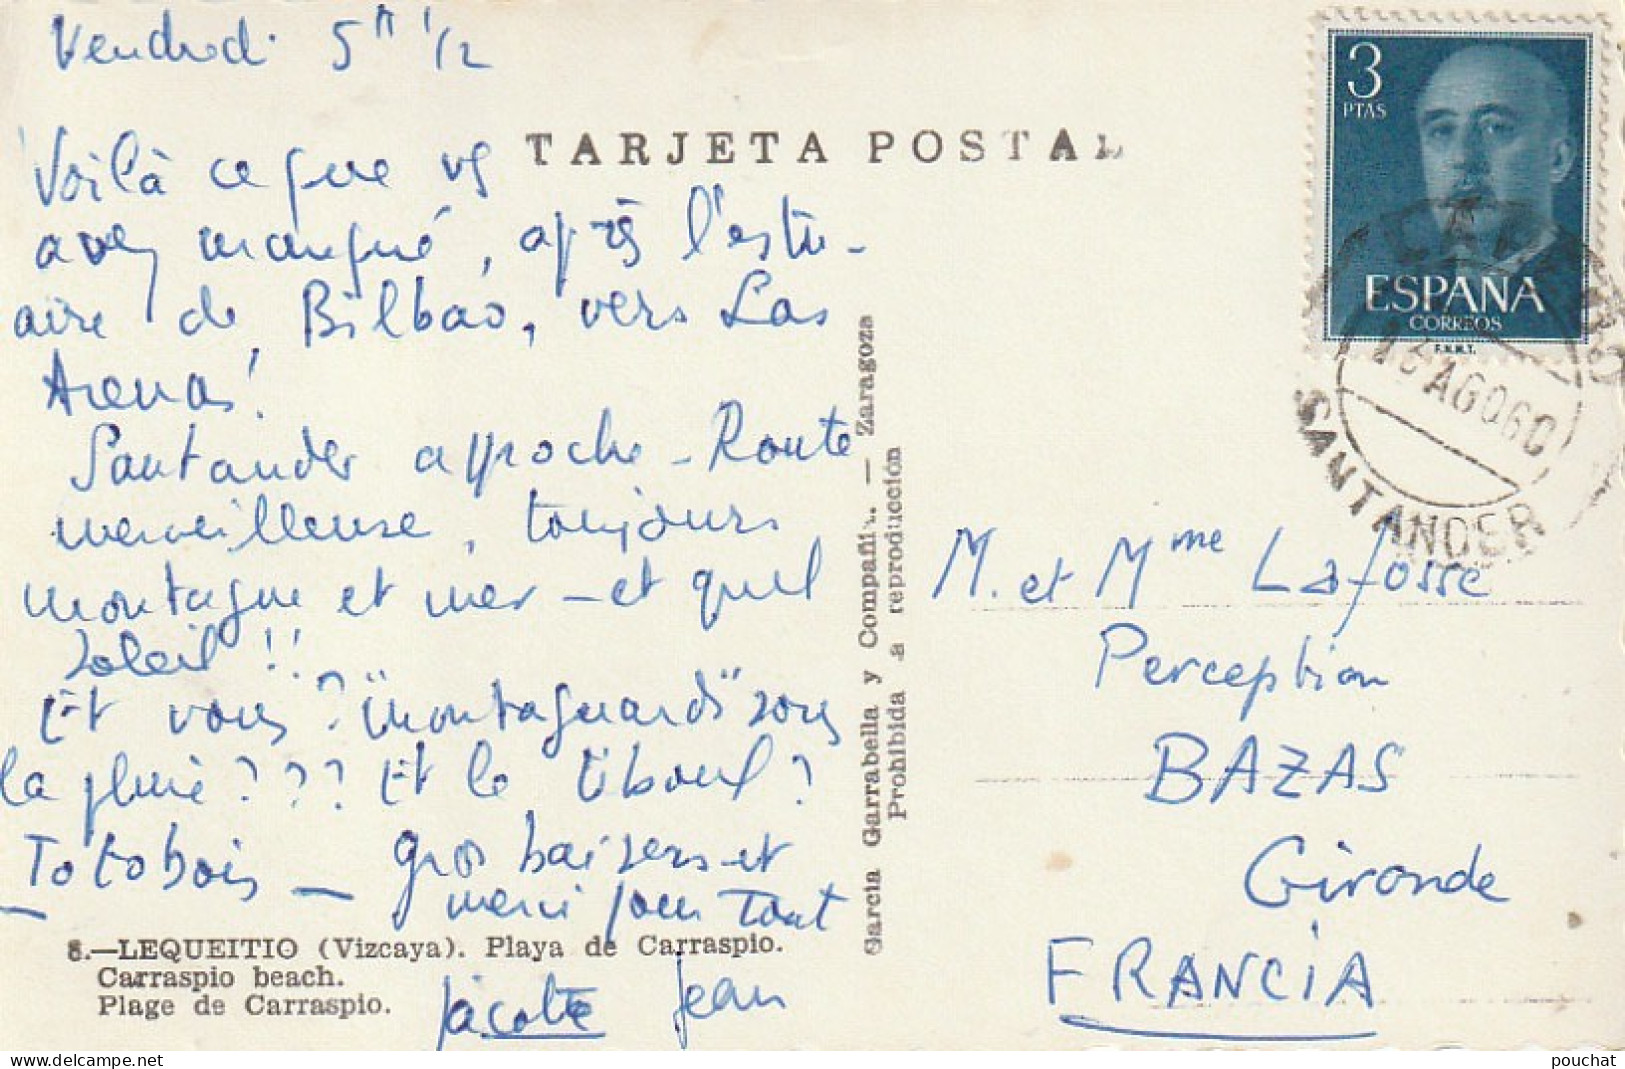 Vendredi 5H 1/2
Voilà ce que vs
avez manqué, après l'estu-
aire de Bilbao, vers Las
Arenas!
Santander approche - Route
merveilleuse, toujours
montagne et mer - et quel
soleil!!
Et vous? "montagnards" sous
la pluie??? Et le tiboul?
Totobois - gros baisers et
merci pour tout
Jacotte Jean
8.—LEQUEITIO (Vizcaya). Playa de Carraspio.
Carraspio beach.
Plage de Carraspio.
TARJETA POSTAL
Garcia Garrabella y Compañía. — Zaragoza
Prohibida la reproducción
3
PTAS
ESPAÑA
CORREOS
F.N.M.T.
AGO 60
SANTANDER
M. et Mme Lafosse
Perception
BAZAS
Gironde
FRANCIA
pouchat